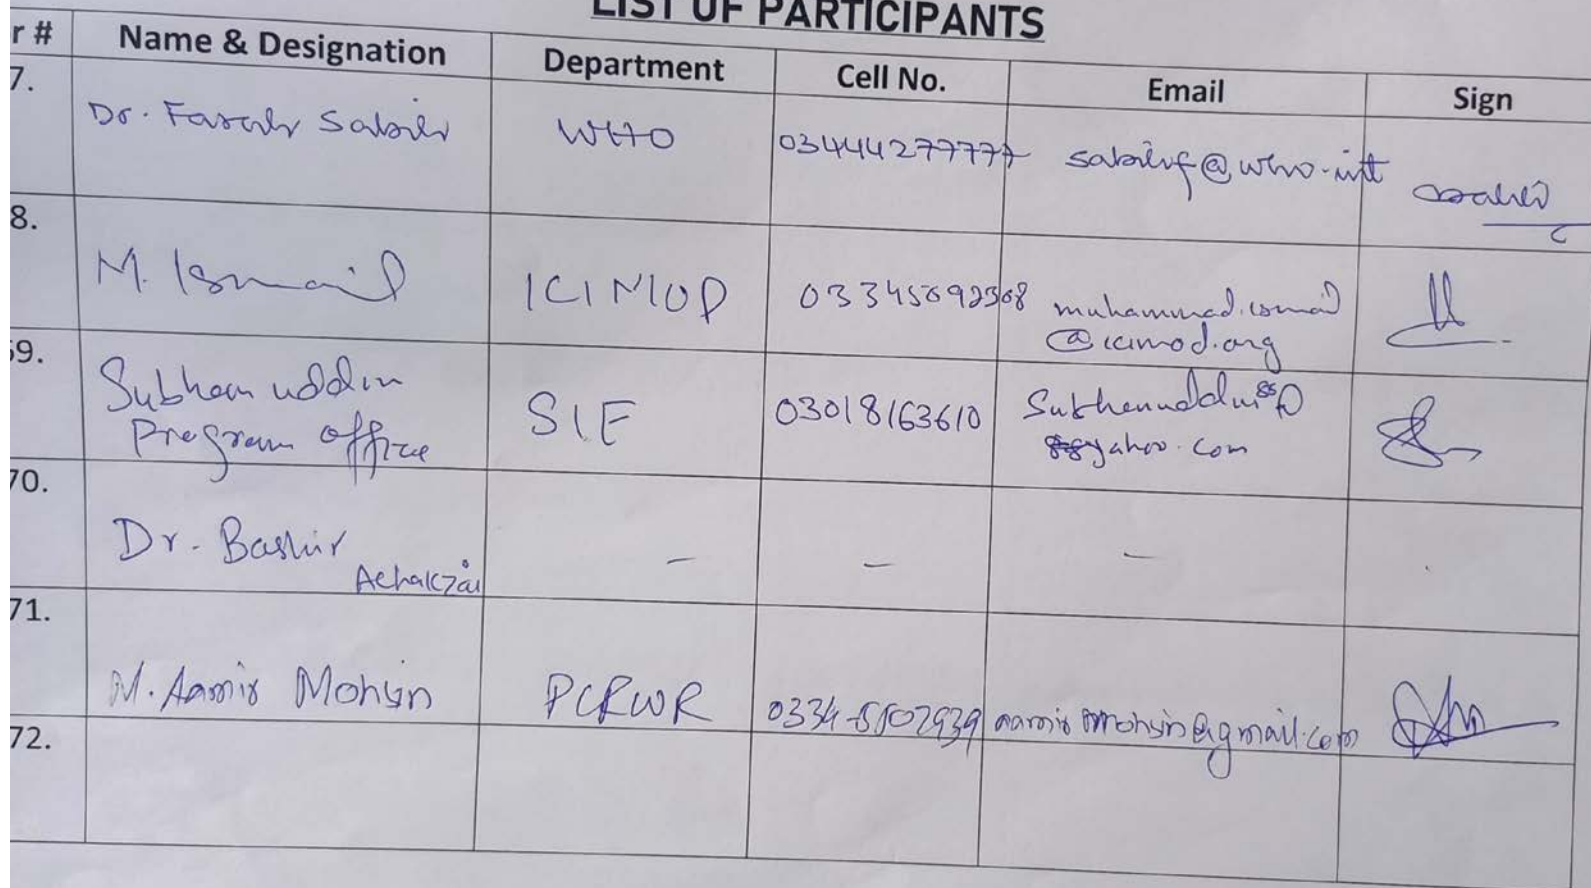 LIST OF PARTICIPANTS
r # Name & Designation Department Cell No. Email Sign
7. Dr. Farah Sabih WHO 03444277777 sabihf@who.int
8. M. Ismail ICIMOD muhammad.ismail
@icimod.org
69. Subhan uddin SIF 03018163610
Program office yahoo.com
70. Dr. Bashir - - -
Achakzai
71. M. Aamir Mohsin PCRWR 0334-5102939 aamirmohsin@gmail.com
72.